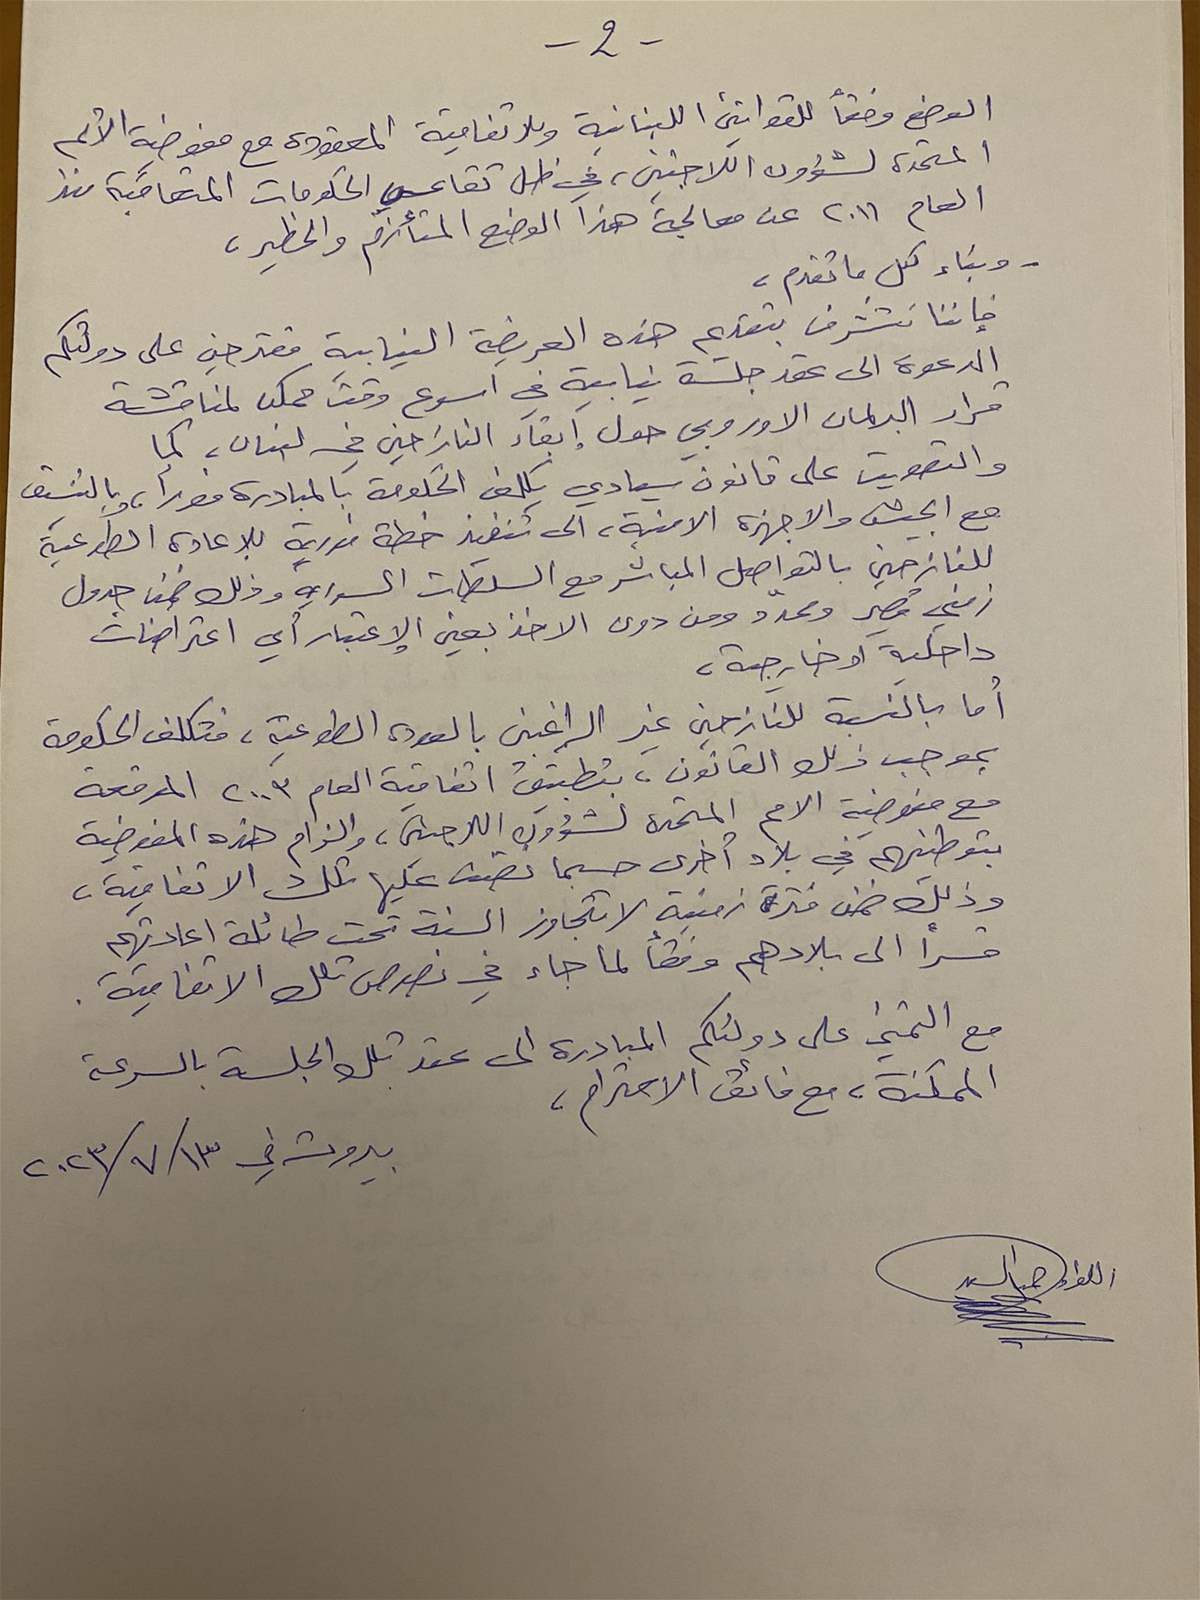 - ٢ -
الوضع وفقاً للقوانين اللبنانية وللاتفاقية المعقودة مع مفوضية الأمم
المتحدة لشؤون اللاجئين، في ظل تقاعس الحكومات المتعاقبة منذ
العام ٢٠١١ عن معالجة هذا الوضع المتأزّم والخطير،
- وبناء لكل ما تقدم،
فإننا نتشرف بتقديم هذه العريضة النيابية مقترحين على دولتكم
الدعوة الى عقد جلسة نيابية في اسرع وقت ممكن لمناقشة
قرار البرلمان الاوروبي حول إبقاء النازحين في لبنان، كما
والتصويت على قانون سيادي يكلف الحكومة بالمبادرة فوراً، وبالتنسيق
مع الجيش والاجهزة الامنية، الى تنفيذ خطة فورية للإعادة الطوعية
للنازحين بالتواصل المباشر مع السلطات السورية وذلك ضمن جدول
زمني قصير ومحدّد ومن دون الاخذ بعين الإعتبار أي اعتراضات
داخلية او خارجية،
أما بالنسبة للنازحين غير الراغبين بالعودة الطوعية، فتكلف الحكومة
بموجب ذلك القانون، بتطبيق اتفاقية العام ٢٠٠٣ الموقعة
مع مفوضية الامم المتحدة لشؤون اللاجئين، والزام هذه المفوضية
بتوطينهم في بلاد أخرى حسبما نصّت عليها تلك الاتفاقية،
وذلك ضمن فترة زمنية لا تتجاوز السنة تحت طائلة اعادتهم
قسراً الى بلادهم وفقاً لما جاء في نصوص تلك الاتفاقية.
مع التمني على دولتكم المبادرة الى عقد تلك الجلسة بالسرعة
الممكنة، مع فائق الاحترام،
بيروت في ١٣/٧/٢٠٢٣
اللواء جميل السيد